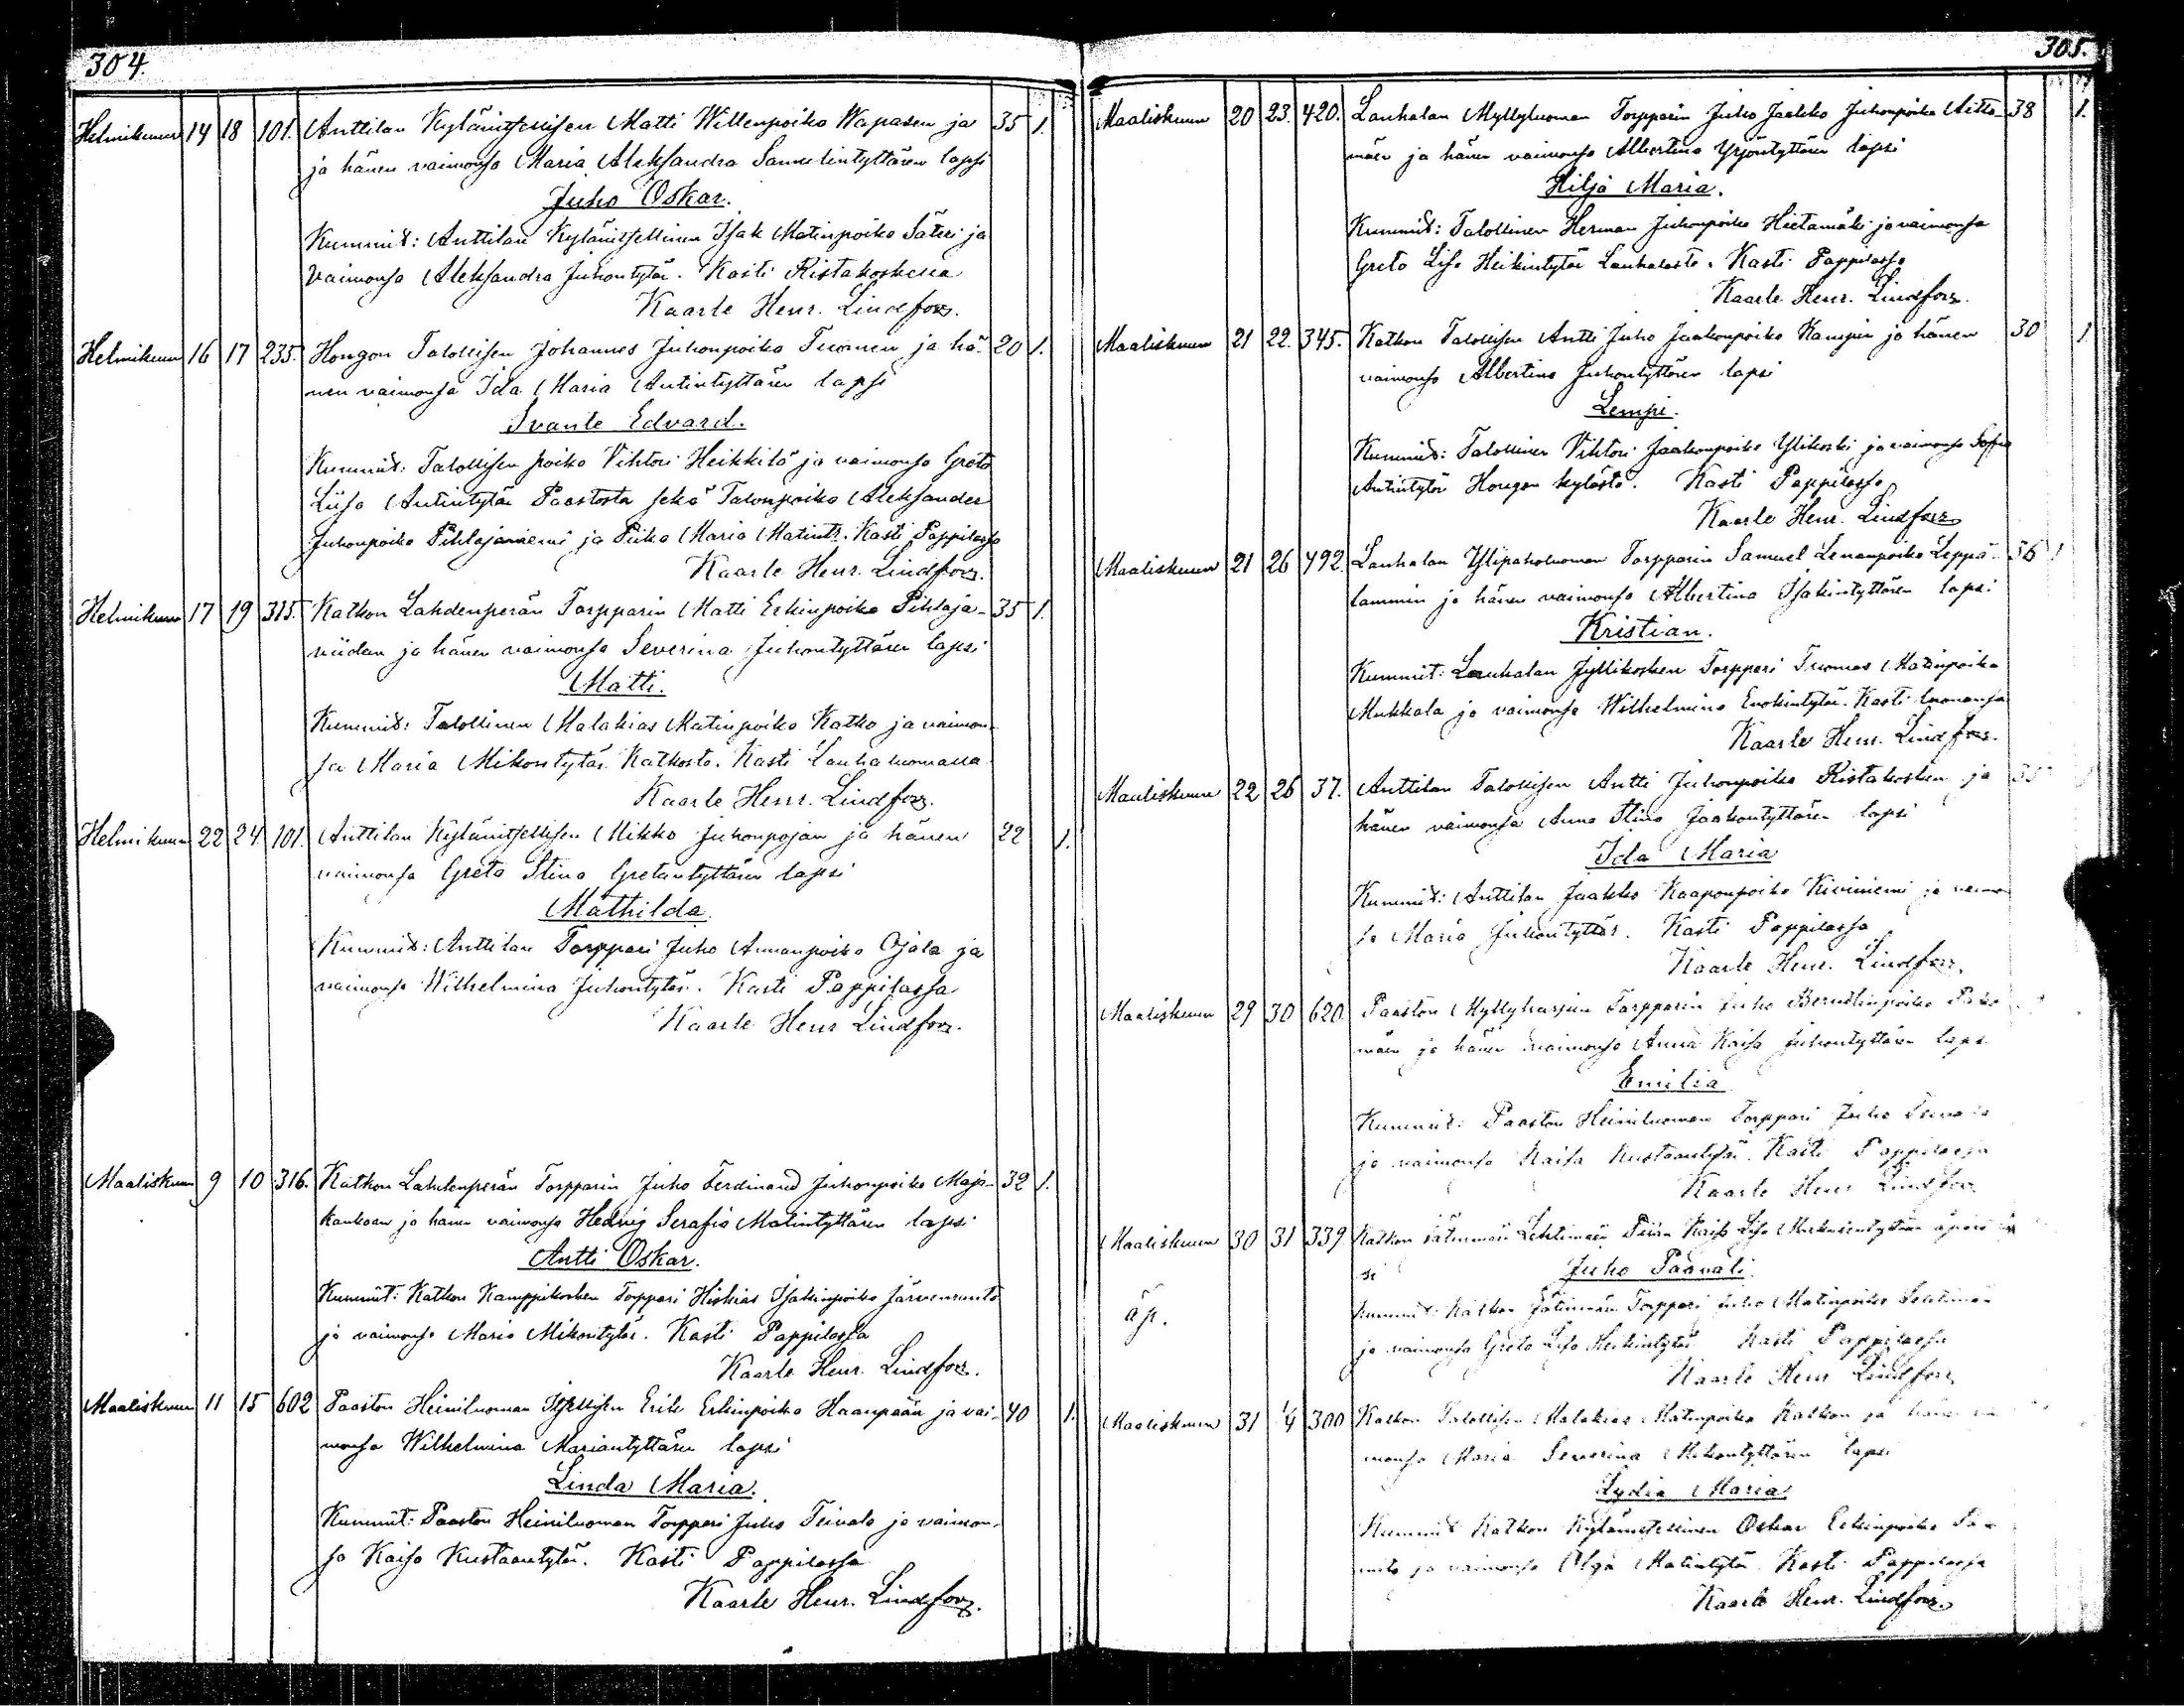 304.
Helmikuun 14 18 101. Anttilan Kylänitsellisen Matti Willenpoika Wapasen ja 35 1.
ja hänen vaimonsa Maria Aleksandra Samulintyttären lapsi
Juho Oskar.
Kummit: Anttilan Kylänitsellinen Isak Matinpoika Säteri ja
vaimonsa Aleksandra Juhontytär. Kasti Ristakoskessa
Kaarle Henr. Lindfors.
Helmikuun 16 17 235. Hongon Talollisen Johannes Juhonpoika Tuomen ja hä- 20 1.
nen vaimonsa Ida Maria Antintyttären lapsi
Svante Edvard.
Kummit: Talollisen poika Vihtori Heikkilä ja vaimonsa Greta
Liisa Antintytär Paastosta sekä Talonpoika Aleksander
Juhonpoika Pihlajaniemi ja Piika Maria Matintr. Kasti Pappilassa
Kaarle Henr. Lindfors.
Helmikuun 17 19 315. Katkon Lahdenperän Torpparin Matti Erkinpoika Pihlaja- 35 1.
viidan ja hänen vaimonsa Severina Juhontyttären lapsi
Matti.
Kummit: Talollinen Malakias Matinpoika Katko ja vaimon-
sa Maria Mikontytär Katkosta. Kasti Lauhaluomassa
Kaarle Henr. Lindfors.
Helmikuun 22 24 101. Anttilan Kylänitsellisen Mikko Juhonpojan ja hänen 22 1.
vaimonsa Greta Stina Gretantyttären lapsi
Mathilda.
Kummit: Anttilan Torppari Juho Annanpoika Ojala ja
vaimonsa Wilhelmina Juhontytär. Kasti Pappilassa
Kaarle Henr Lindfors.
Maaliskuun 9 10 316. Katkon Lahdenperän Torpparin Juho Ferdinand Juhonpoika Maja- 32 1.
kankaan ja hänen vaimonsa Hedvig Serafia Matintyttären lapsi
Antti Oskar.
Kummit: Katkon Kamppikosken Torppari Hiskias Isakinpoika Järvenranta
ja vaimonsa Maria Mikontytär. Kasti Pappilassa
Kaarle Henr. Lindfors.
Maaliskuun 11 15 602 Paaston Heiniluoman Itsellisen Erik Erkinpoika Haanpään ja vai- 40 1.
monsa Wilhelmina Mariantyttären lapsi
Linda Maria.
Kummit: Paaston Heiniluoman Torppari Juho Teivala ja vaimon-
sa Kaisa Kustaantytär. Kasti Pappilassa
Kaarle Henr. Lindfors.
305.
Maaliskuun 20 23. 420. Lauhalan Myllyluoman Torpparin Juho Jaakko Juhonpoika Aitto- 38 1.
mäen ja hänen vaimonsa Albertina Yrjöntyttären lapsi
Hilja Maria.
Kummit: Talollinen Herman Juhonpoika Hietamäki ja vaimonsa
Greta Lisa Heikintytär Lauhalasta. Kasti Pappilassa
Kaarle Henr. Lindfors.
Maaliskuun 21 22. 345. Katkon Talollisen Antti Juho Jaakonpoika Kampin ja hänen 30 1
vaimonsa Albertina Juhontyttären lapsi
Lempi.
Kummit: Talollinen Vihtori Jaakonpoika Ylikoski ja vaimonsa Sofia
Antintytär Hongon kylästä. Kasti Pappilassa
Kaarle Henr. Lindfors
Maaliskuun 21 26 492. Lauhalan Ylipaholuoman Torpparin Samuel Lenanpoika Leppä- 36 1
lammin ja hänen vaimonsa Albertina Isakintyttären lapsi
Kristian.
Kummit: Lauhalan Jyllikosken Torppari Tuomas Matinpoika
Mukkala ja vaimonsa Wilhelmina Enokintytär. Kasti luonansa
Kaarle Henr. Lindfors.
Maaliskuun 22 26 37. Anttilan Talollisen Antti Juhonpoika Ristakosken ja 35
hänen vaimonsa Anna Stina Jaakontyttären lapsi
Ida Maria
Kummit: Anttilan Jaakko Kaaponpoika Kiviniemi ja vaimon
sa Maria Juhontyttär. Kasti Pappilassa
Kaarle Henr. Lindfors.
Maaliskuun 29 30 620. Paaston Myllyharjun Torpparin Juho Berndtinpoika
mäen ja hänen vaimonsa Anna Kaisa Juhontyttären lapsi
Emilia
Kummit: Paaston Heiniluoman Torppari Juho Teivala
ja vaimonsa Kaisa Kustaantytär. Kasti Pappilassa
Kaarle Henr Lindfors
Maaliskuun 30 31 339 Katkon Lehtimäen Piian Kaisa Lisa äpärä
Juho Paavali.
äp. Kummit: Katkon Torppari Juho Matinpoika Lehtimäen
ja vaimonsa Greta Lisa Heikintytär Kasti Pappilassa
Kaarle Henr Lindfors
Maaliskuun 31 1/4 300 Katkon Talollisen Malakias Matinpoika Katkon ja hänen vai
monsa Maria Severina Mikontyttären lapsi
Lydia Maria
Kummit Katkon Kylänitsellinen Oskar Erkinpoika
ja vaimonsa Olga Matintytär Kasti Pappilassa
Kaarle Henr. Lindfors.